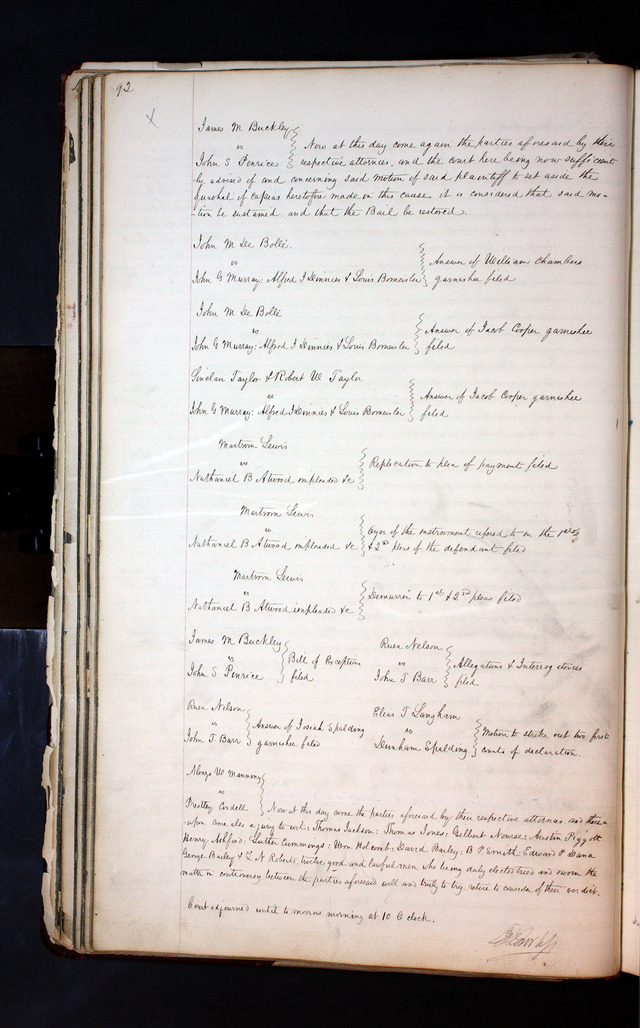 92
X
James M Buckley
vs
John S Penrice
Now at this day come again the parties aforesaid by their
respective attornies, and the court here being now sufficient
ly advised of and concerning said motion of said plaintiff to set aside the
quashal of capias heretofore made in this cause it is considered that said mo-
-tion be sustained and that the Bail be restored.
John M De Bollé.
vs
John G Murray: Alfred J Dennies & Louis Bomeisler
Answer of William Chambers
garnishee filed
John M De Bollé
vs
John G Murray: Alfred J Dennies & Louis Bomeisler
Answer of Jacob Cooper garnishee
filed
Sinclair Taylor & Robert W Taylor
vs
John G Murray: Alfred J Dennies & Louis Bomeisler
Answer of Jacob Cooper garnishee
filed
Martrom Lewis
vs
Nathaniel B Atwood impleaded &c
Replication to plea of payment filed
Martrom Lewis
vs
Nathaniel B Atwood impleaded &c
Oyer of the instrument refered to in the 1st
& 2nd pleas of the defendant filed
Martrom Lewis
vs
Nathaniel B Atwood impleaded &c
Demurrer to 1st & 2nd pleas filed
James M Buckley
vs
John S Penrice
Bill of Exceptions
filed
Ruea Nelson
vs
John T Barr
Allegations & Interrogatories
filed
Ruea Nelson
vs
John T Barr
Answer of Josiah Spalding
garnishee filed
Elias T Langham
vs
Dunham Spalding
Motion to strike out two first
counts of declaration.
Alonzo W Manning
vs
Prestley Cordell
Now at this day come the parties aforesaid by their respective attornies and there-
-upon came also a jury to wit: Thomas Jackson: Thomas Jones: Gilbert Nourse: Austin Piggott
Henry Ashford: Luther Cummings: Wm Holcomb: David Bailey: B P Smith: Edward P Dana
George Bailey & L N Roberts, twelve good and lawful men who being duly elected tried and sworn the
matter in controversy between the parties aforesaid well and truly to try, retire to consider of their verdict.
Court adjourned until to morrow morning at 10 O'clock.